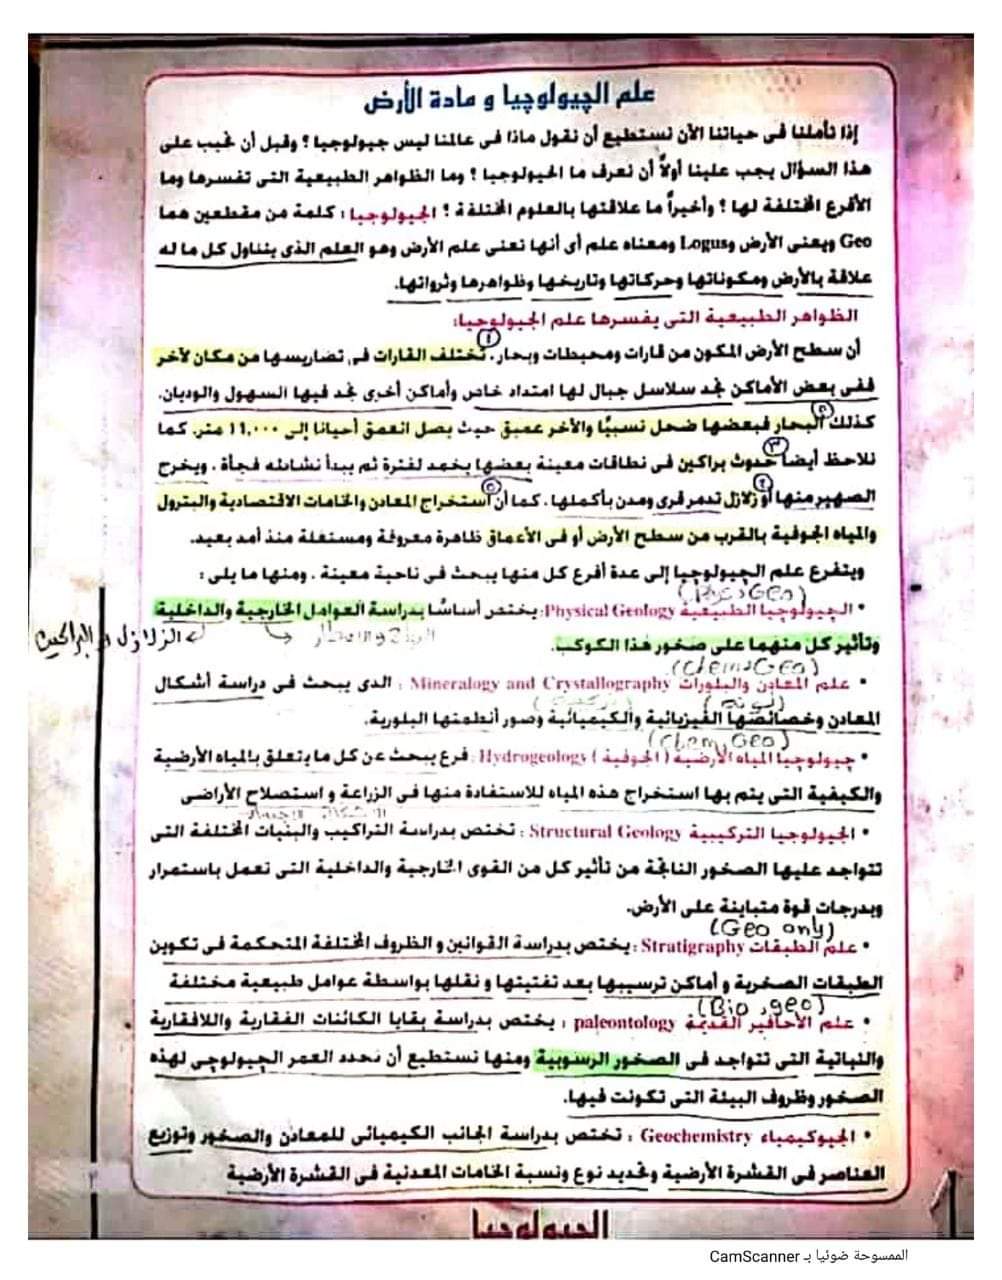 علم الچيولوچيا و مادة الأرض
إذا تأملنا فى حياتنا الآن نستطيع أن نقول ماذا فى عالمنا ليس جيولوجيا ؟ وقبل أن نجيب على
هذا السؤال يجب علينا أولاً أن نعرف ما الجيولوجيا ؟ وما الظواهر الطبيعية التى تفسرها وما
الأفرع المختلفة لها ؟ وأخيراً ما علاقتها بالعلوم المختلفة ؟ الجيولوجيا : كلمة من مقطعين هما
Geo ويعنى الأرض وLogus ومعناه علم أى أنها تعنى علم الأرض وهو العلم الذى يتناول كل ما له
علاقة بالأرض ومكوناتها وحركاتها وتاريخها وظواهرها وثرواتها.
الظواهر الطبيعية التى يفسرها علم الجيولوجيا:
أن سطح الأرض المكون من قارات ومحيطات وبحار. ١ تختلف القارات فى تضاريسها من مكان لآخر
ففى بعض الأماكن نجد سلاسل جبال لها امتداد خاص وأماكن أخرى نجد فيها السهول والوديان.
كذلك البحار فبعضها ضحل نسبيًا والآخر عميق حيث يصل العمق أحيانا إلى ١١,٠٠٠ متر. كما
نلاحظ أيضاً ٣ حدوث براكين فى نطاقات معينة بعضها يخمد لفترة ثم يبدأ نشاطه فجأة . ويخرج
الصهير منها أو زلازل تدمر قرى ومدن بأكملها. كما أن استخراج المعادن والخامات الاقتصادية والبترول
والمياه الجوفية بالقرب من سطح الأرض أو فى الأعماق ظاهرة معروفة ومستغلة منذ أمد بعيد.
ويتفرع علم الچيولوچيا إلى عدة أفرع كل منها يبحث فى ناحية معينة . ومنها ما يلى :
• الچيولوچيا الطبيعية Physical Geology: يختص أساسًا بدراسة العوامل الخارجية والداخلية
الزلازل و البراكين
وتأثير كل منهما على صخور هذا الكوكب.
(chem, Geo)
• علم المعادن والبلورات Mineralogy and Crystallography : الذى يبحث فى دراسة أشكال
المعادن وخصائصها الفيزيائية والكيميائية وصور أنظمتها البلورية.
(chem, Geo)
• چيولوچيا المياه الأرضية ( الجوفية ) Hydrogeology : فرع يبحث عن كل ما يتعلق بالمياه الأرضية
والكيفية التى يتم بها استخراج هذه المياه للاستفادة منها فى الزراعة و استصلاح الأراضى
• الجيولوجيا التركيبية Structural Geology : تختص بدراسة التراكيب والبنيات المختلفة التى
تتواجد عليها الصخور الناتجة من تأثير كل من القوى الخارجية والداخلية التى تعمل باستمرار
وبدرجات قوة متباينة على الأرض.
(Geo only)
• علم الطبقات Stratigraphy : يختص بدراسة القوانين و الظروف المختلفة المتحكمة فى تكوين
الطبقات الصخرية و أماكن ترسيبها بعد تفتيتها و نقلها بواسطة عوامل طبيعية مختلفة
(Bio, geo)
• علم الأحافير القديمة paleontology : يختص بدراسة بقايا الكائنات الفقارية واللافقارية
والنباتية التى تتواجد فى الصخور الرسوبية ومنها نستطيع أن نحدد العمر الچيولوچى لهذه
الصخور وظروف البيئة التى تكونت فيها.
• الجيوكيمياء Geochemistry : تختص بدراسة الجانب الكيميائى للمعادن والصخور وتوزيع
العناصر فى القشرة الأرضية وتحديد نوع ونسبة الخامات المعدنية فى القشرة الأرضية
٢
الجيولوجيا
الممسوحة ضوئيا بـ CamScanner